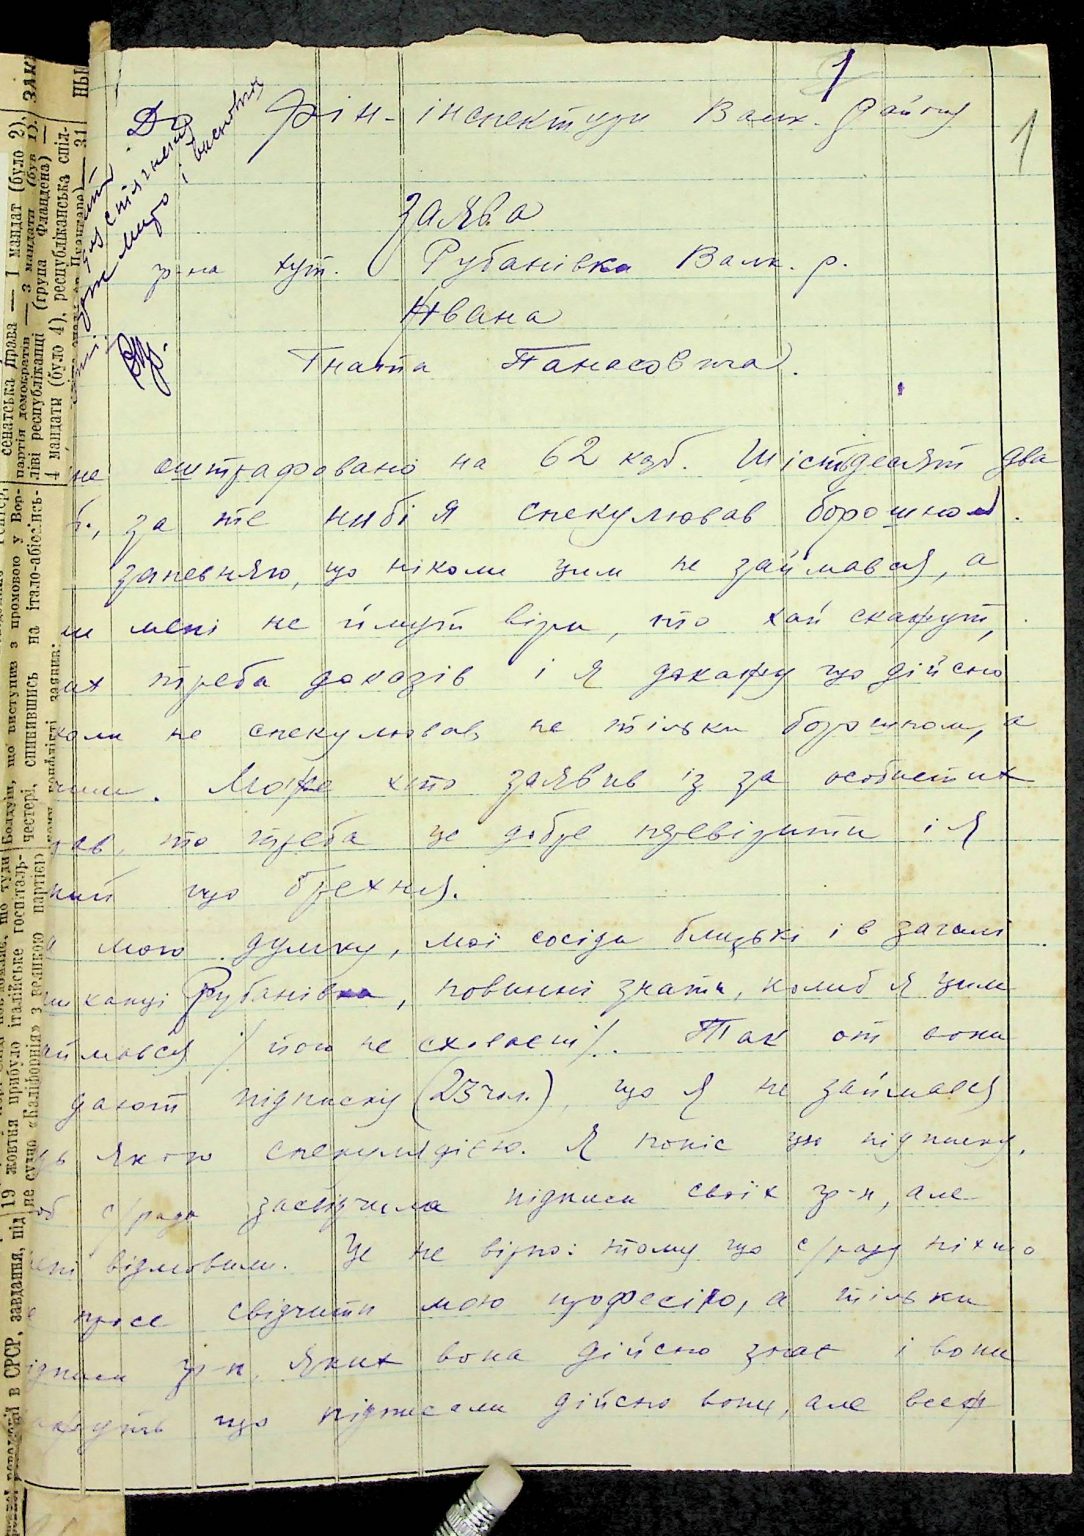 1
1
До фін-інспектури Валк. району
Заява
гр-на хут. Рубанівка Валк. р.
Жвана
Гната Панасовича.
не оштрафовано на 62 крб. Шістдесят два
б., за те нибі я спекулював борошном.
запевняю, що ніколи цим не займався, а
ли мені не ймут віри, то хай скажут,
их треба доказів і я докажу що дійсно
коли не спекулював не тільки борошном, а
чим. Може хто заявив із за особистих
то треба це добре перевірити і я
ний що брехня.
а мою думку, мої сосіди близькі і в загалі
шканці Рубанівка, повинні знати, колиб я цим
аймався / його не сховаєш /. Так от вони
дают підписку (23 чол.), що я не займався
дь якою спекуляцією. Я поніс цю підписку,
об с/рада засвідчила підписи своїх гр-н, але
ені відмовили. Це не вірно: тому що с/раду ніхто
е просе свідчити мою професію, а тільки
ідписи гр-н, яких вона дійсно знає і вони
ажуть що підписали дійсно вони, але все ж
сенатська права — 1 мандат (було 2),
партія демократів — 3 мандати (був 1),
ліві республіканці (група Фландена) —
4 мандати (було 4), республіканська спіл-
що виступив з промовою у Вор-
честері, спинившись на італо-абіссінсь-
19 жовтня прибуло італійське госпіталь-
не судно «Каліфорнія» з великою партією
в СРСР, завдання, під